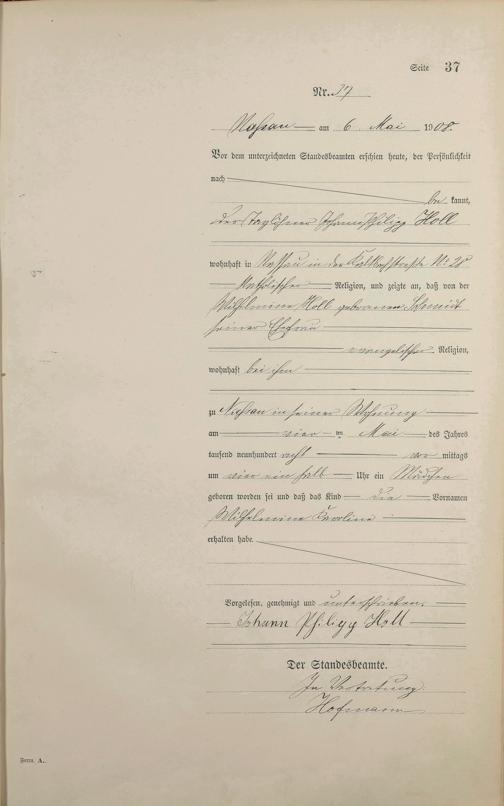 Seite 37
Nr. 37
Nassau am 6. Mai 1908.
Vor dem unterzeichneten Standesbeamten erschien heute, der Persönlichkeit
nach
be kannt,
der Taglöhner Johann Philipp Holl
wohnhaft in Nassau in der Kaltbachstraße No 28
katholischer Religion, und zeigte an, daß von der
Wilhelmine Holl geborenen Schmidt
seiner Ehefrau
evangelischer Religion,
wohnhaft bei ihm
zu Nassau in seiner Wohnung
am vier ten Mai des Jahres
tausend neunhundert acht vor mittags
um vier ein halb Uhr ein Mädchen
geboren worden sei und daß das Kind die Vornamen
Wilhelmine Karoline
erhalten habe.
Vorgelesen, genehmigt und unterschrieben.
Johann Philipp Holl
Der Standesbeamte.
In Vertretung
Hofmann
Form. A.